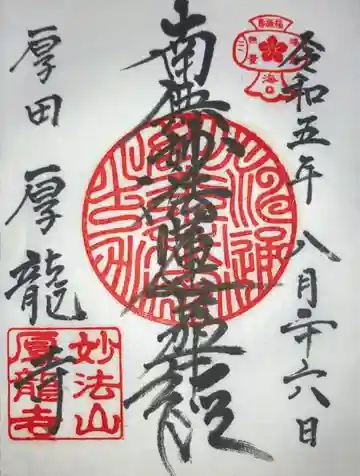 令和五年 八月二十六日
南無妙法蓮華経
厚田 厚龍寺
妙法山
厚龍寺